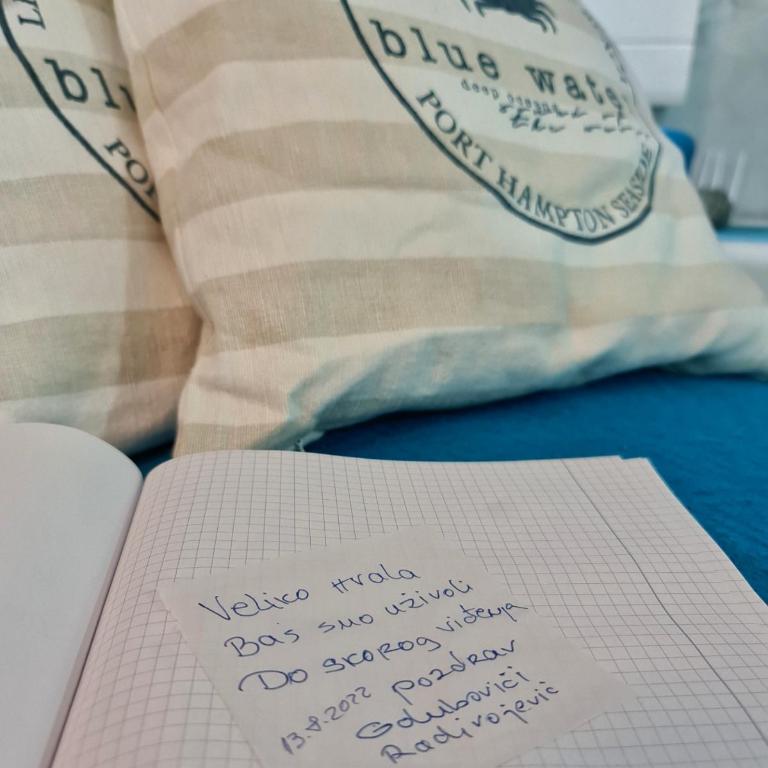 blu
PO
blue wate
PORT HAMPTON SEASIDE
Veliko Hvala
Baš smo uživali
Do skorog viđenja
13.8.2022 Pozdrav
Radivojević